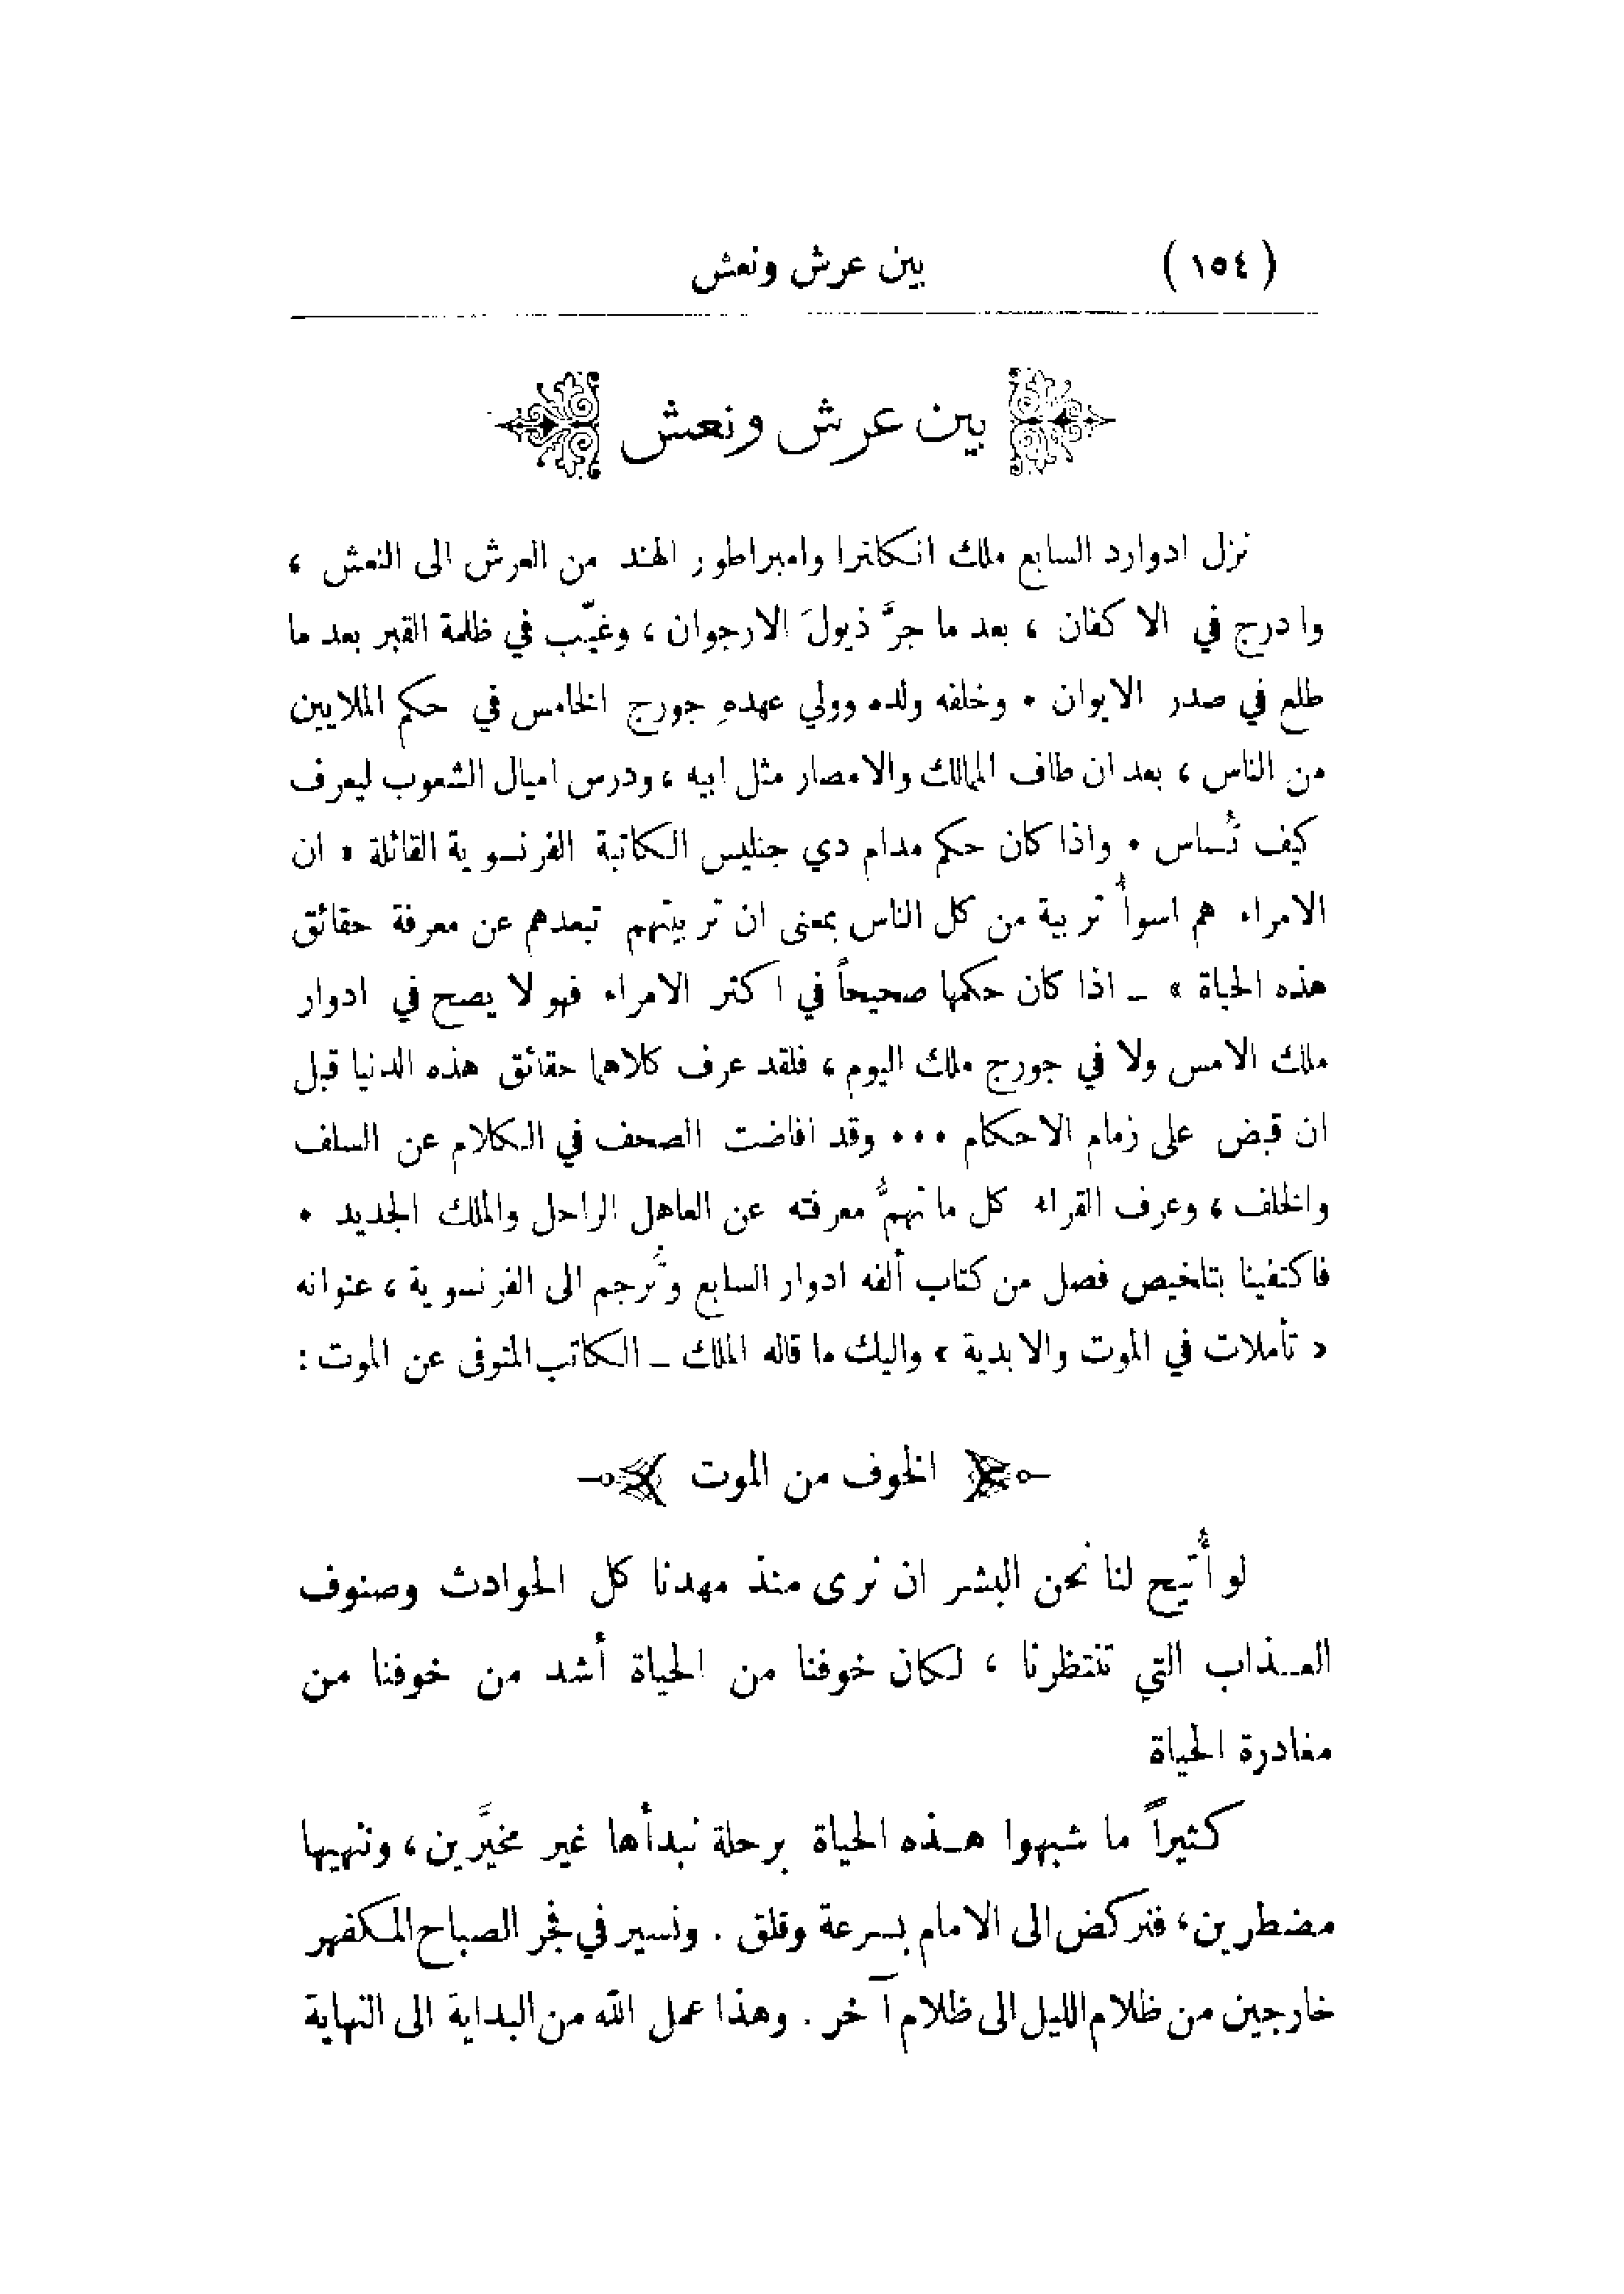 (١٥٤) بين عرش ونعش
بين عرش ونعش
نزل ادوارد السابع ملك انكلترا وامبراطور الهند من العرش الى النعش ،
وادرج في الاكفان ، بعد ما جرَّ ذيولَ الارجوان ، وغيّب في ظلمة القبر بعد ما
طلع في صدر الايوان . وخلفه ولده وولي عهدهِ جورج الخامس في حكم الملايين
من الناس ، بعد ان طاف المالك والامصار مثل ابيه ، ودرس اميال الشعوب ليعرف
كيف تُساس . واذا كان حكم مدام دي جنليس الكاتبة الفرنسوية القائلة « ان
الامراء هم اسوأُ تربية من كل الناس بمعنى ان تربيتهم تبعدهم عن معرفة حقائق
هذه الحياة » – اذا كان حكمها صحيحاً في اكثر الامراء فهو لا يصح في ادوار
ملك الامس ولا في جورج ملك اليوم ، فلقد عرف كلاهما حقائق هذه الدنيا قبل
ان قبض على زمام الاحكام ... وقد افاضت الصحف في الكلام عن السلف
والخلف ، وعرف القراء كل ما تهمُّ معرفته عن العاهل الراحل والملك الجديد .
فاكتفينا بتلخيص فصل من كتاب ألفه ادوار السابع وتُرجم الى الفرنسوية ، عنوانه
« تأملات في الموت والابدية » واليك ما قاله الملك – الكاتب المتوفى عن الموت :
الخوف من الموت
لو أُتيح لنا نحن البشر ان نرى منذ مهدنا كل الحوادث وصنوف
العذاب التي تنتظرنا ، لكان خوفنا من الحياة أشد من خوفنا من
مغادرة الحياة
كثيراً ما شبهوا هذه الحياة برحلة نبدأها غير مخيَّرين ، وننهيها
مضطرين ، فنركض الى الامام بسرعة وقلق . ونسير في فجر الصباح المكفهر
خارجين من ظلام الليل الى ظلام آخر . وهذا عمل الله من البداية الى النهاية